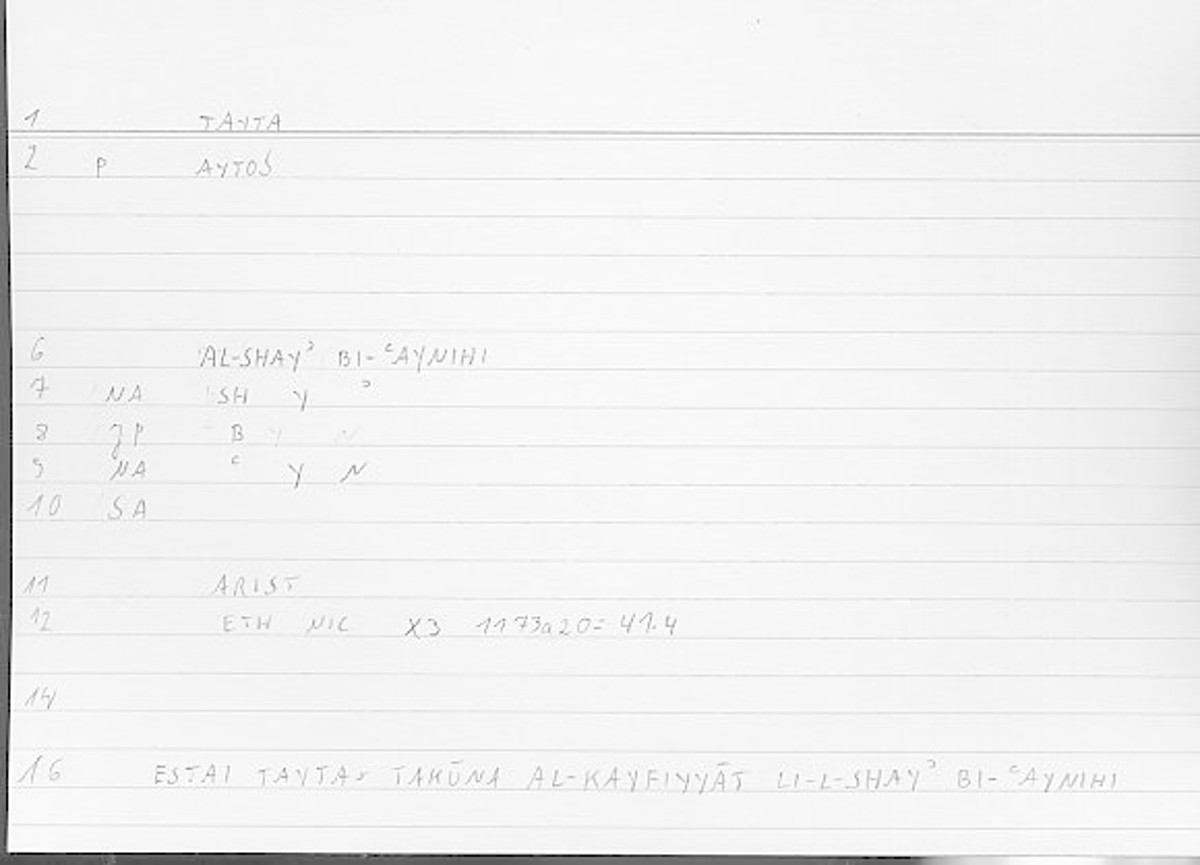 1 TAYTA
2 P AYTOS
6 AL-SHAYʾ BI-ʿAYNIHI
7 NA SH Y ʾ
8 JP B
9 NA ʿ Y N
10 SA
11 ARIST
12 ETH NIC X3 1173a20= 41.4
14
16 ESTAI TAYTA- TAKŪNA AL-KAYFIYYĀT LI-L-SHAYʾ BI-ʿAYNIHI